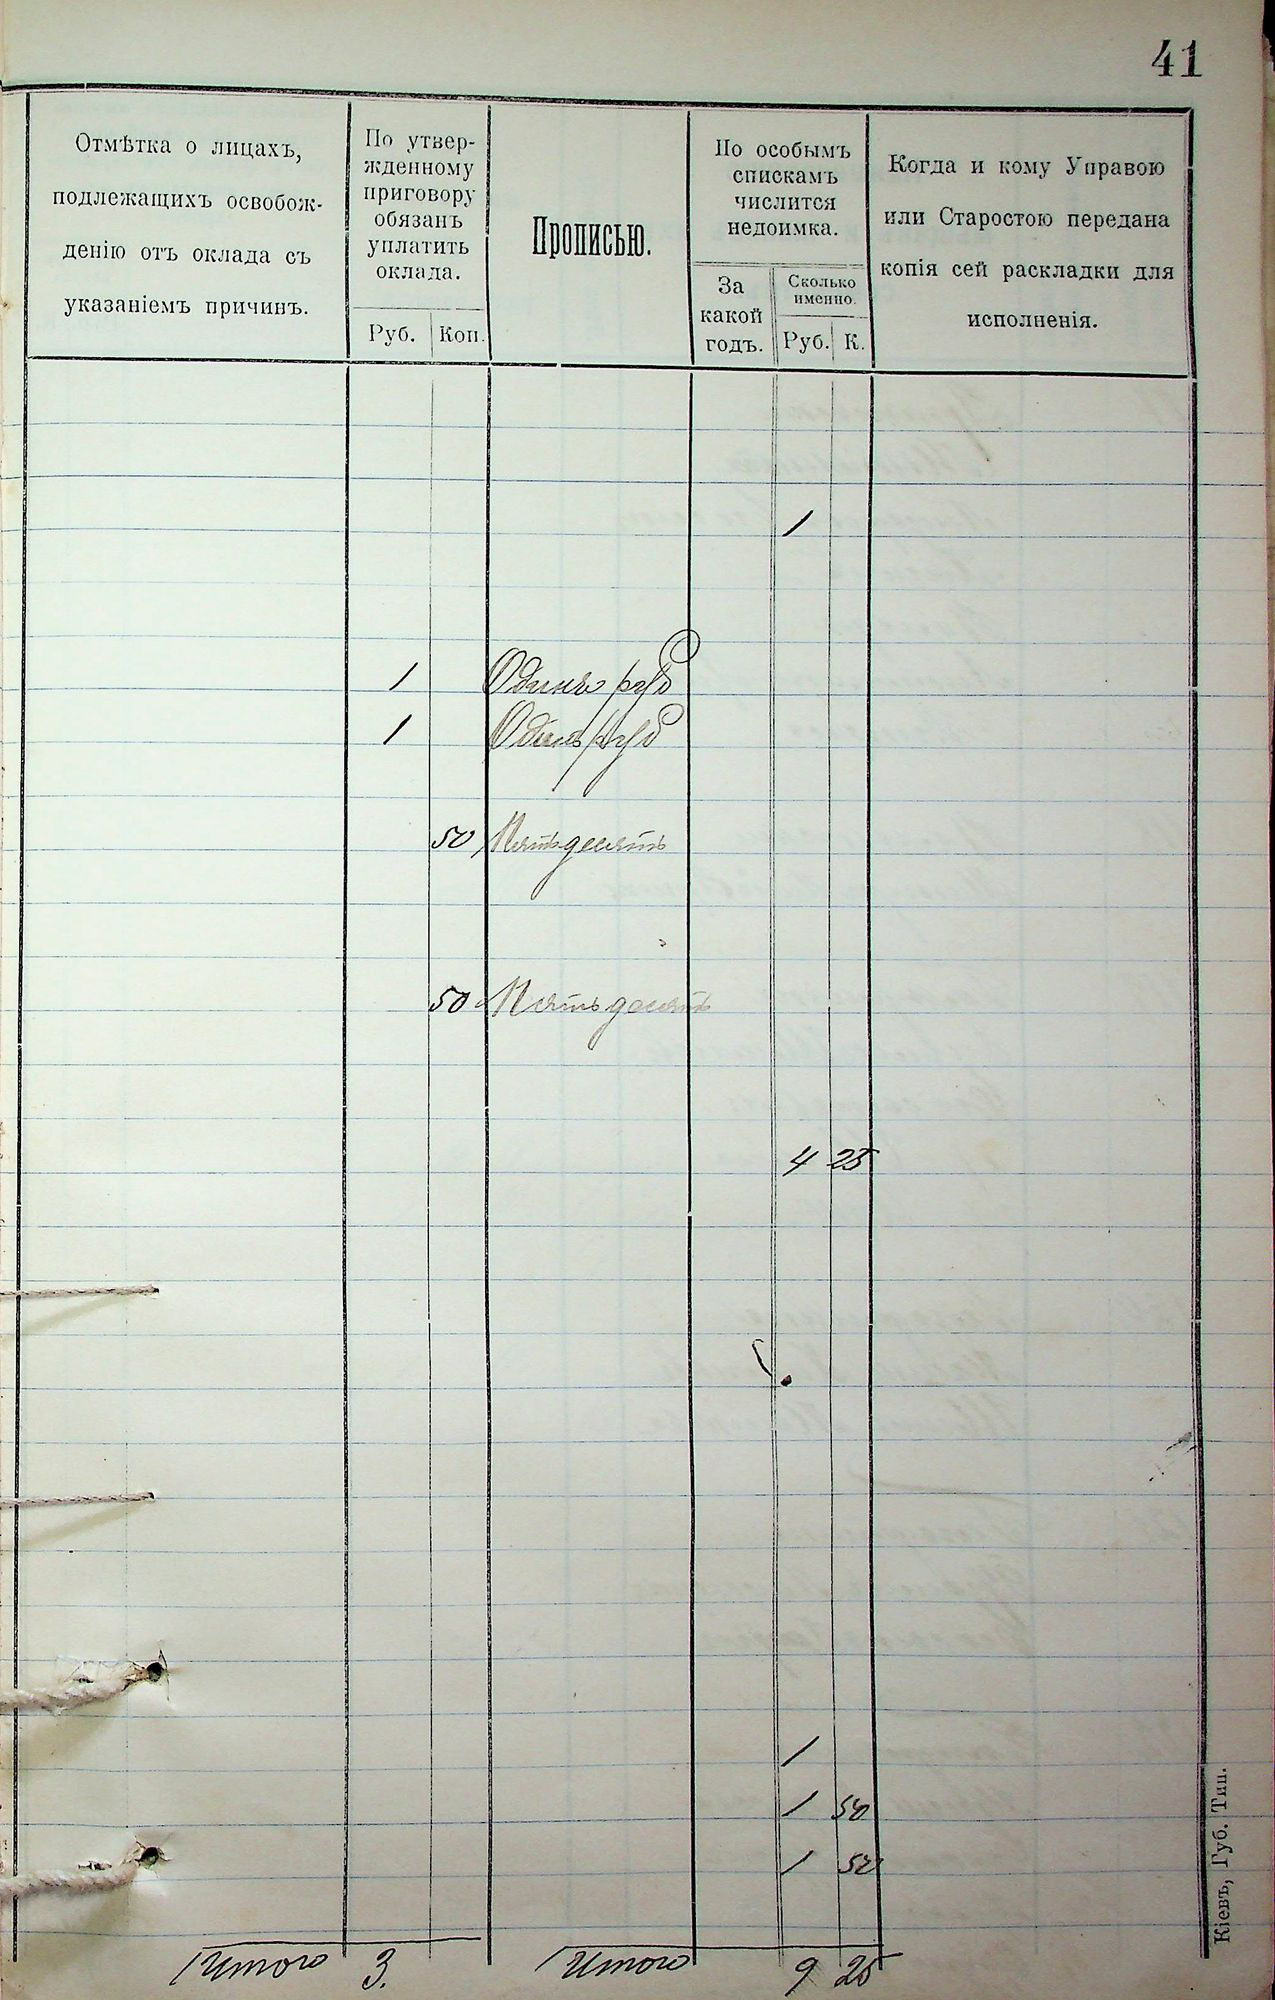 41
Отмѣтка о лицахъ,
подлежащихъ освобож-
денію отъ оклада съ
указаніемъ причинъ.
По утвер-
жденному
приговору
обязанъ
уплатить
оклада.
Руб. Коп.
Прописью.
По особымъ
спискамъ
числится
недоимка.
За
какой
годъ.
Сколько
именно.
Руб. К.
Когда и кому Управою
или Старостою передана
копія сей раскладки для
исполненія.
1
1 Одинъ руб
1 Одинъ руб
50 Пятьдесятъ
50 Пятьдесятъ
4 25
1
1 50
1 50
Итого 3. Итого 9 25
Кіевъ, Губ. Тип.